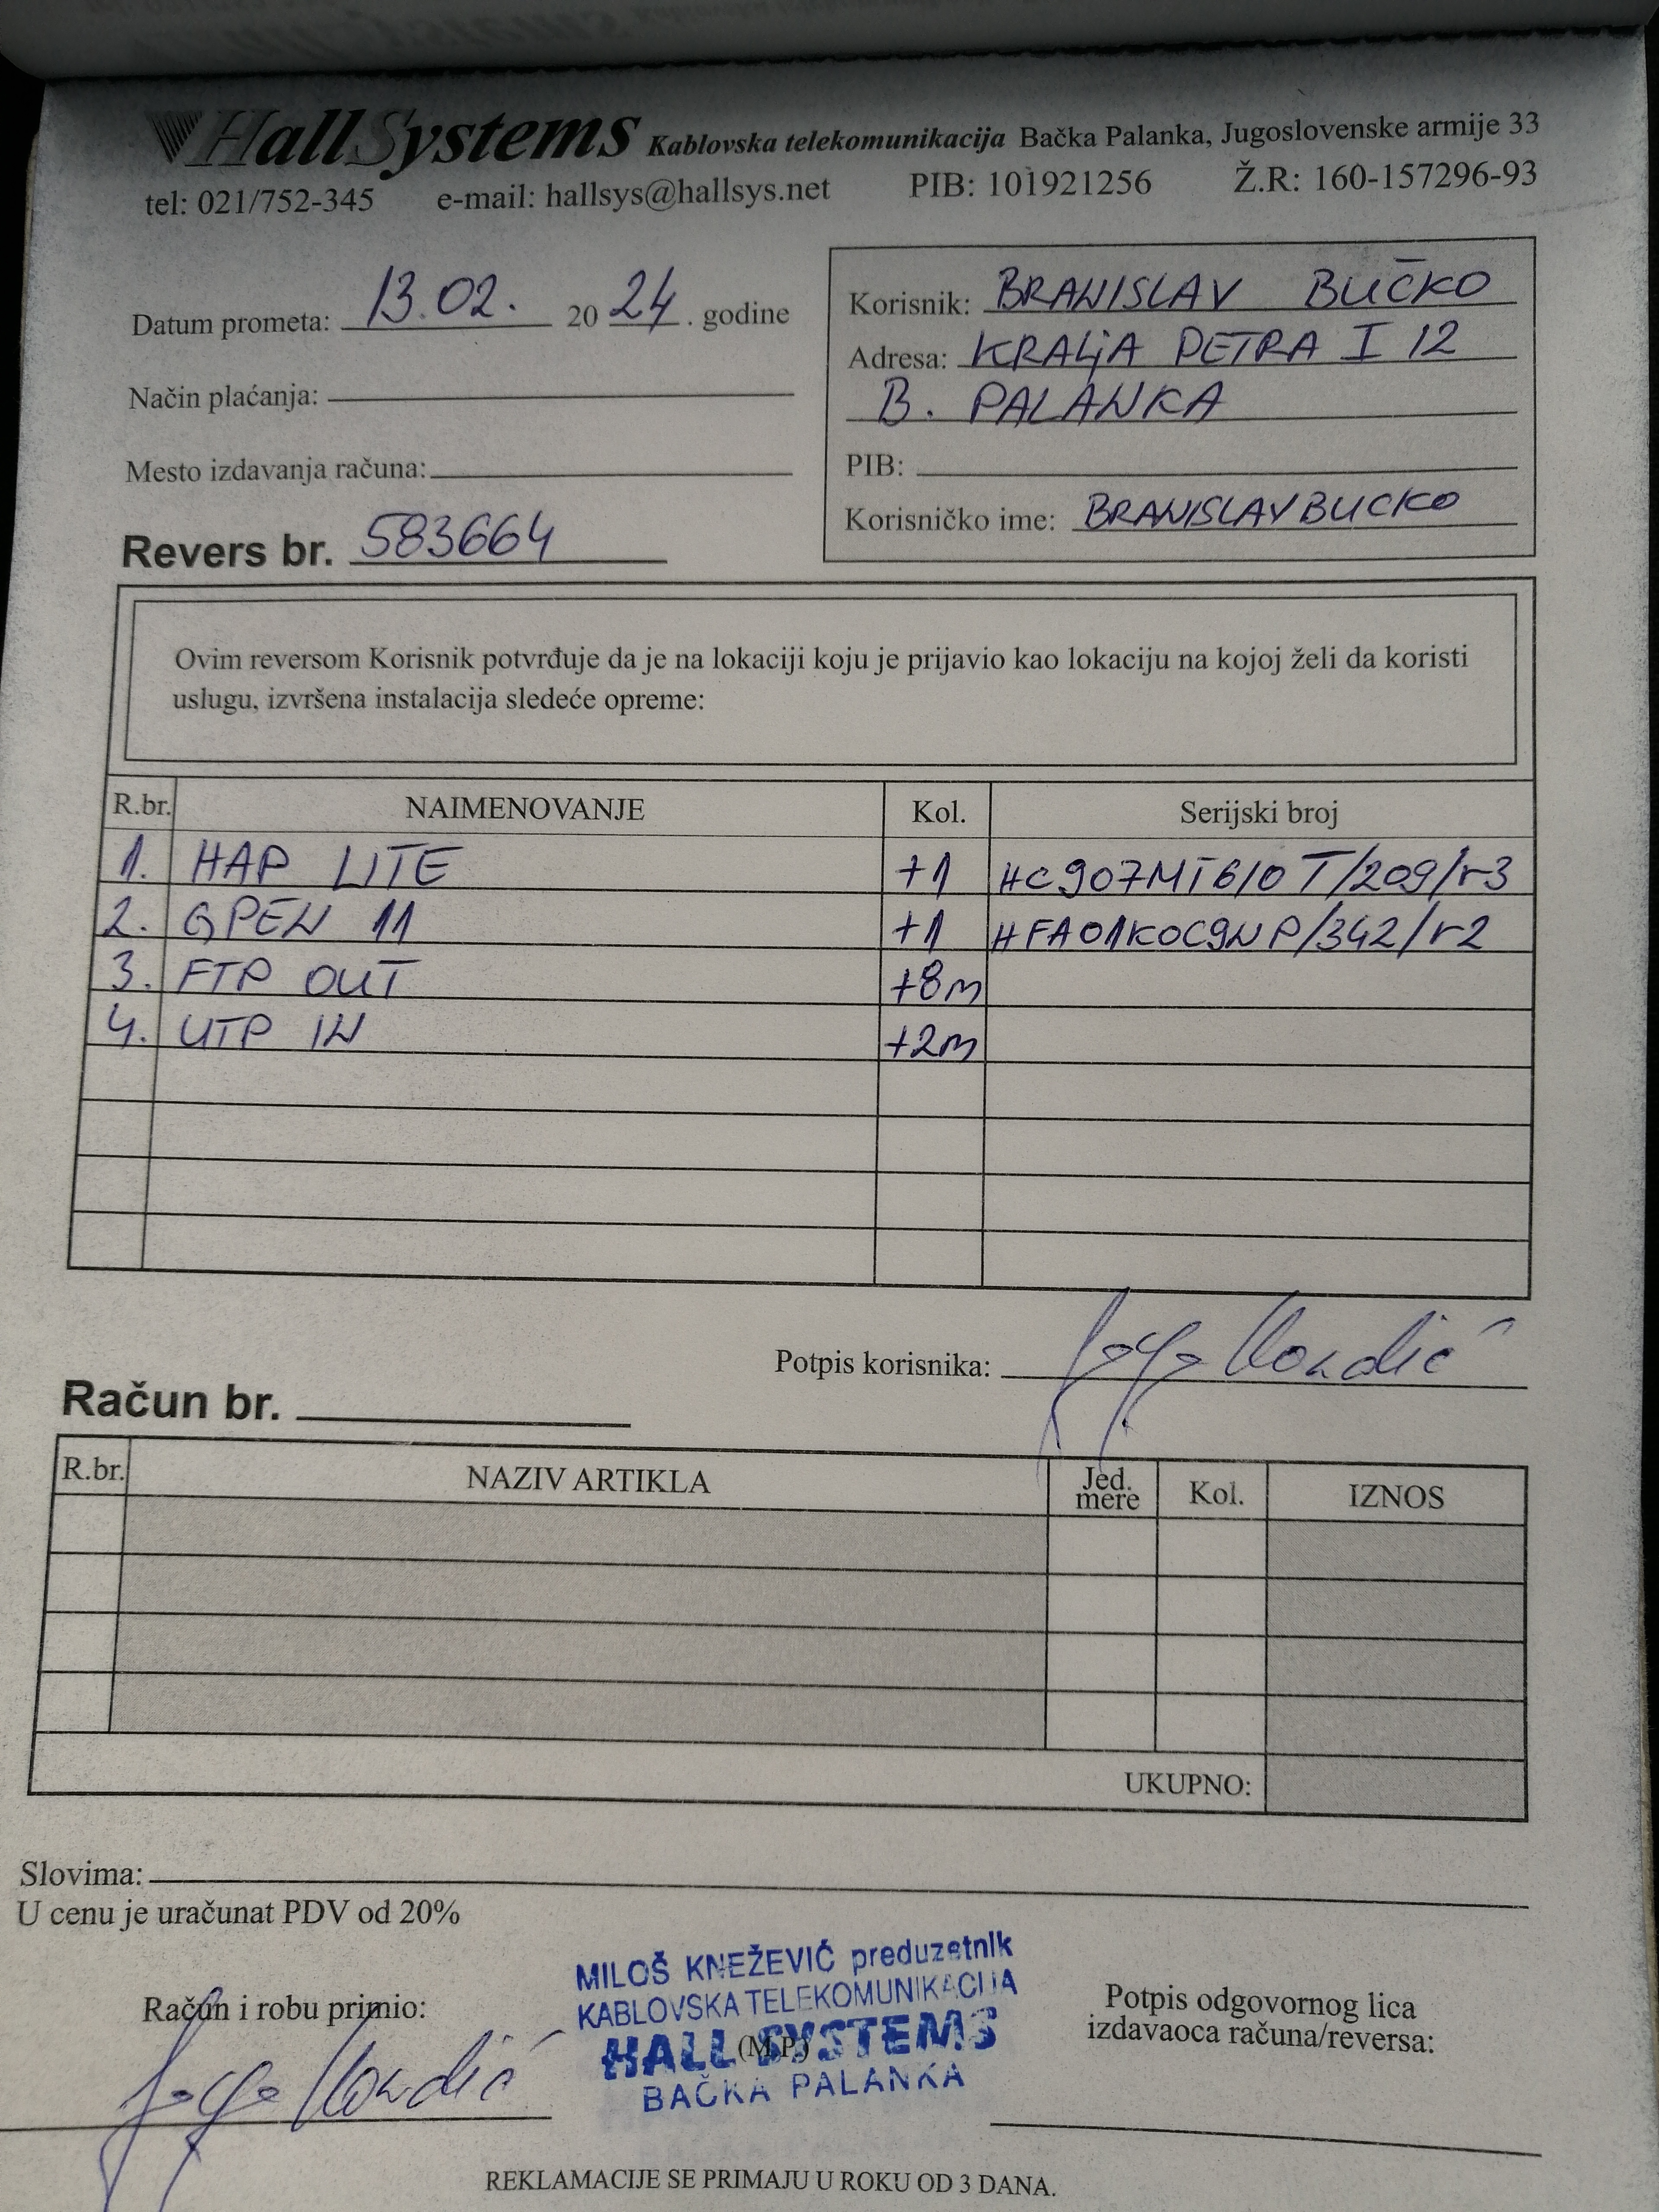 HallSystems Kablovska telekomunikacija Bačka Palanka, Jugoslovenske armije 33
tel: 021/752-345 e-mail: hallsys@hallsys.net PIB: 101921256 Ž.R: 160-157296-93
Datum prometa: 13.02. 2024. godine
Način plaćanja:
Mesto izdavanja računa:
Revers br. 583664
Korisnik: BRANISLAV BUČKO
Adresa: KRALjA PETRA I 12
B. PALANKA
PIB:
Korisničko ime: BRANISLAVBUCKO
Ovim reversom Korisnik potvrđuje da je na lokaciji koju je prijavio kao lokaciju na kojoj želi da koristi
uslugu, izvršena instalacija sledeće opreme:
R.br. NAIMENOVANJE Kol. Serijski broj
1. HAP LITE +1 HC907MT610T/209/r3
2. GPEN 11 +1 HFA01K0C9NP/342/r2
3. FTP OUT +8m
4. UTP IN +2m
Potpis korisnika:
Račun br.
R.br. NAZIV ARTIKLA Jed. mere Kol. IZNOS
UKUPNO:
Slovima:
U cenu je uračunat PDV od 20%
Račun i robu primio:
MILOŠ KNEŽEVIĆ preduzetnik
KABLOVSKA TELEKOMUNIKACIJA
HALL SYSTEMS
(M.P.)
BAČKA PALANKA
Potpis odgovornog lica
izdavaoca računa/reversa:
REKLAMACIJE SE PRIMAJU U ROKU OD 3 DANA.